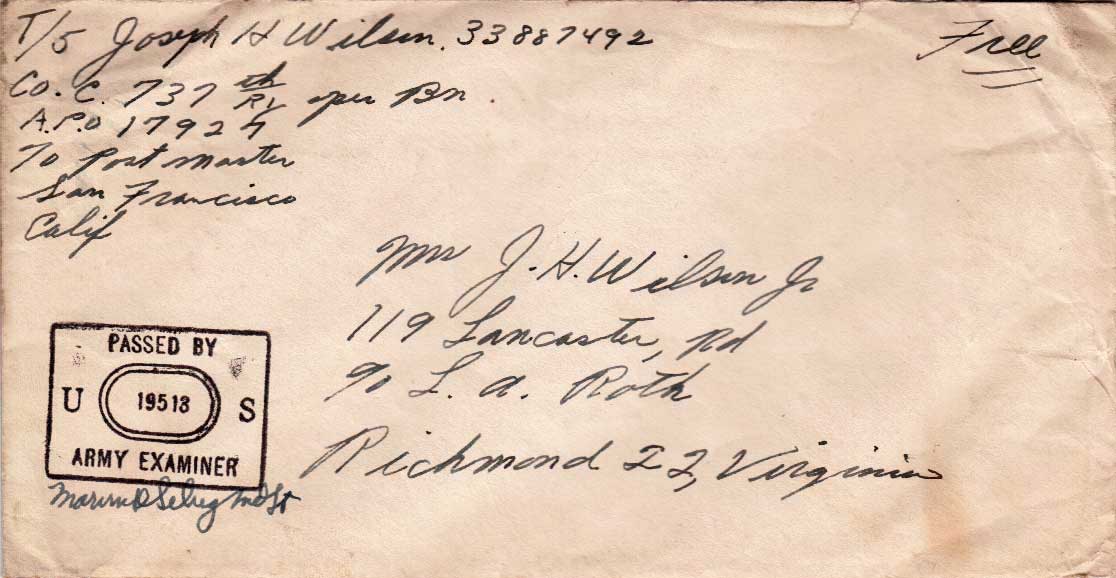 T/5 Joseph H Wilson. 33887492
Free
Co. C. 737th Ry oper Bn
A.P.O 17924
℅ Postmaster
San Francisco
Calif
Mrs J. H. Wilson Jr
119 Lancaster, Rd
℅ L. A. Roth
Richmond 22, Virginia
PASSED BY
U 19513 S
ARMY EXAMINER